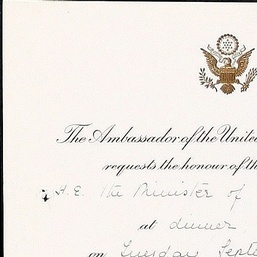 The Ambassador of the United
requests the honour of th
H. E. the Minister of
at dinner
on Tuesday Septe